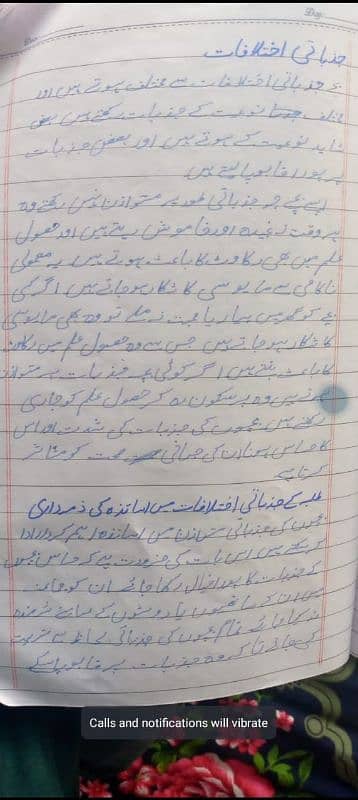 جذباتی اختلافات
بچے جذباتی اختلافات سے مختلف ہوتے ہیں اور
مختلف نوعیت کے جذبات رکھتے ہیں بعض
شدید نوعیت کے ہوتے ہیں اور بعض جذبات
پر پورا قابو پا لیتے ہیں
ایسے بچے جو جذباتی طور پر متوازن نہیں رکھتے وہ
ہر وقت رنجیدہ اور خاموش رہتے ہیں اور حصول
علم میں بھی رکاوٹ کا باعث ہوتے ہیں یہ معمولی
ناکامی سے مایوسی کا شکار ہو جاتے ہیں اگر کسی
بچے کو گھر میں پیار یا محبت نہ ملے تو وہ بھی مایوسی
کا شکار ہو جاتے ہیں جس سے وہ حصول علم میں رکاوٹ
کا باعث بنتے ہیں اگر کوئی بچہ جذبات پر متوازن
ہوتے ہیں وہ پر سکون رہ کر حصول علم کو جاری
رکھتے ہیں بچوں کی جذبات کی شدت اور اس
کا حساس ہونا ان کی جسمانی صحت کو متاثر
کرتا ہے
طلبہ کے جذباتی اختلافات میں اساتذہ کی ذمہ داری
بچوں کی جذباتی متوازن میں اساتذہ اہم کردار ادا
کر سکتے ہیں اس بات کی ضرورت ہے کہ حساس بچوں
کے جذبات کا پورا خیال رکھا جائے ان کو جماعت
میں ان کے ساتھیوں یا دوستوں کے سامنے شرمندہ
نہ کیا جائے تمام بچوں کی جذباتی لحاظ سے تربیت
کی جائے تاکہ وہ جذبات پر قابو پا سکے
Calls and notifications will vibrate